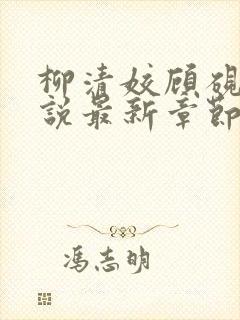 柳清姣顾砚
说最新章节
冯志明